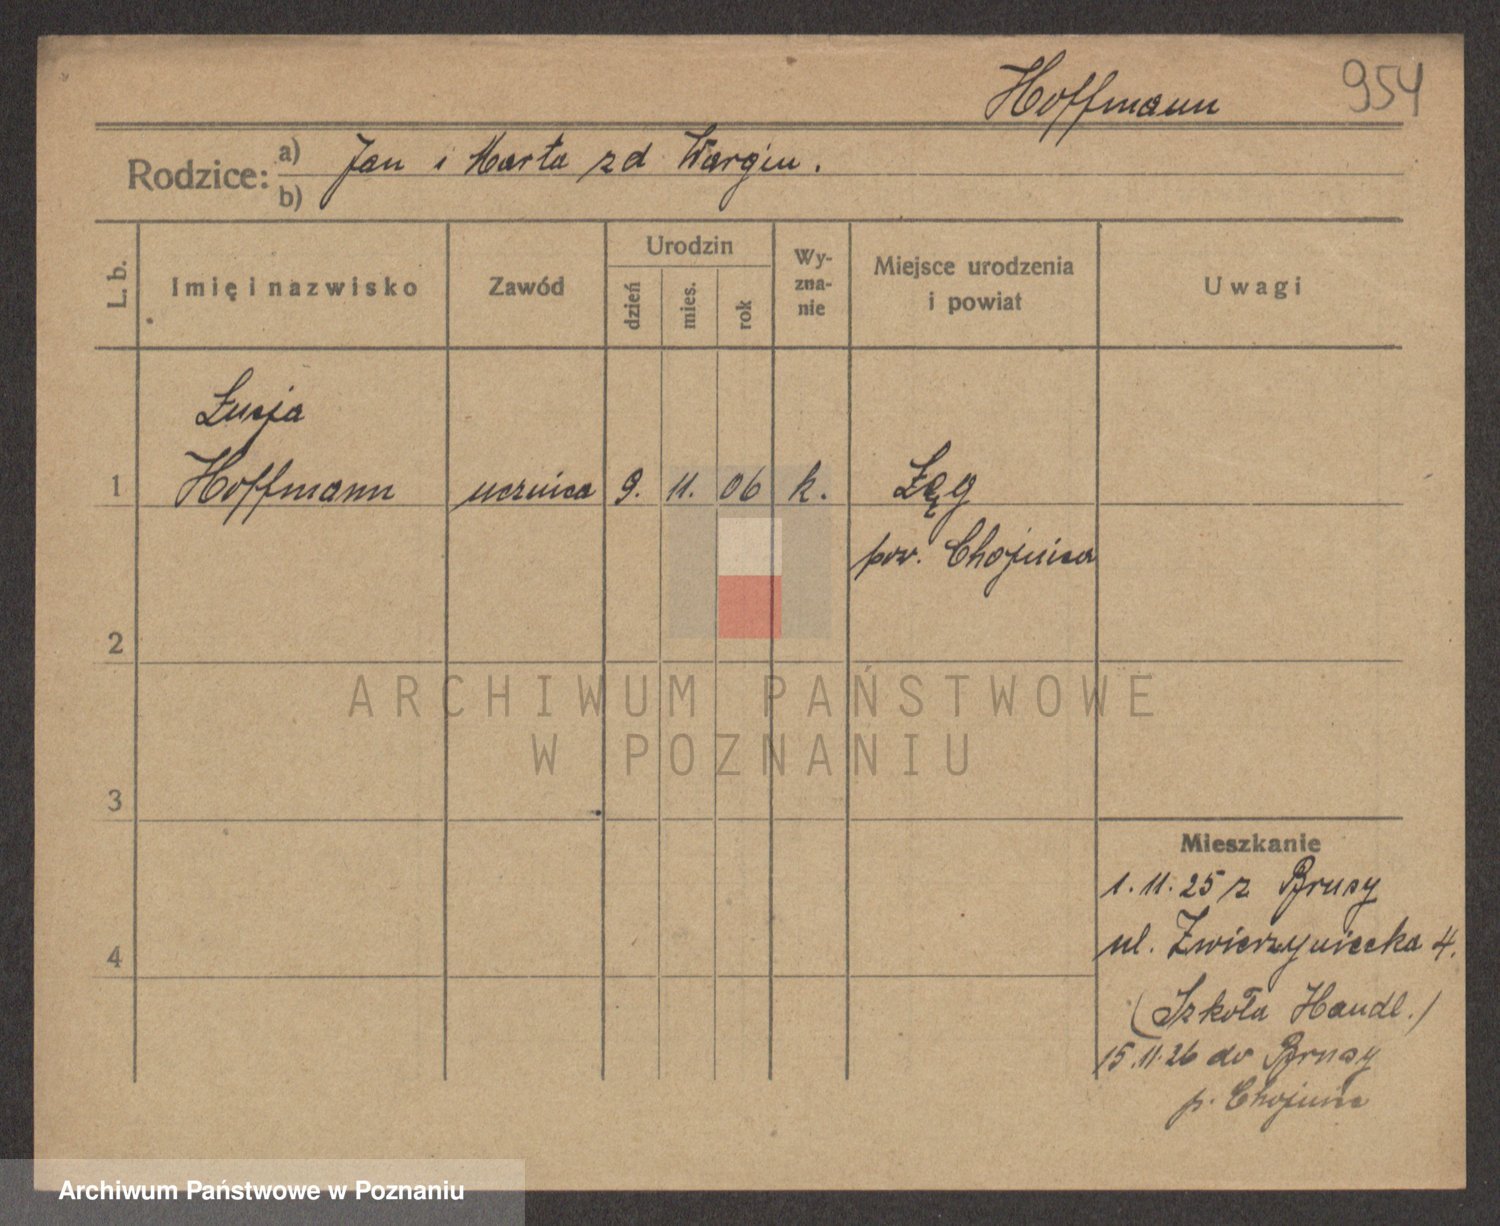 Hoffmann 954
Rodzice: a) Jan i Marta zd Wargin.
b)
L. b. Imię i nazwisko Zawód Urodzin dzień mies. rok Wyznanie Miejsce urodzenia i powiat Uwagi
Łucja
1 Hoffmann ucznica 9. 11. 06 k. Łęg
pow. Chojnice
2
ARCHIWUM PAŃSTWOWE
W POZNANIU
3
Mieszkanie
1.11.25 z Brusy
ul. Zwierzyniecka 4.
4
(Szkoła Handl.)
15.11.26 do Brusy
p. Chojnice
Archiwum Państwowe w Poznaniu